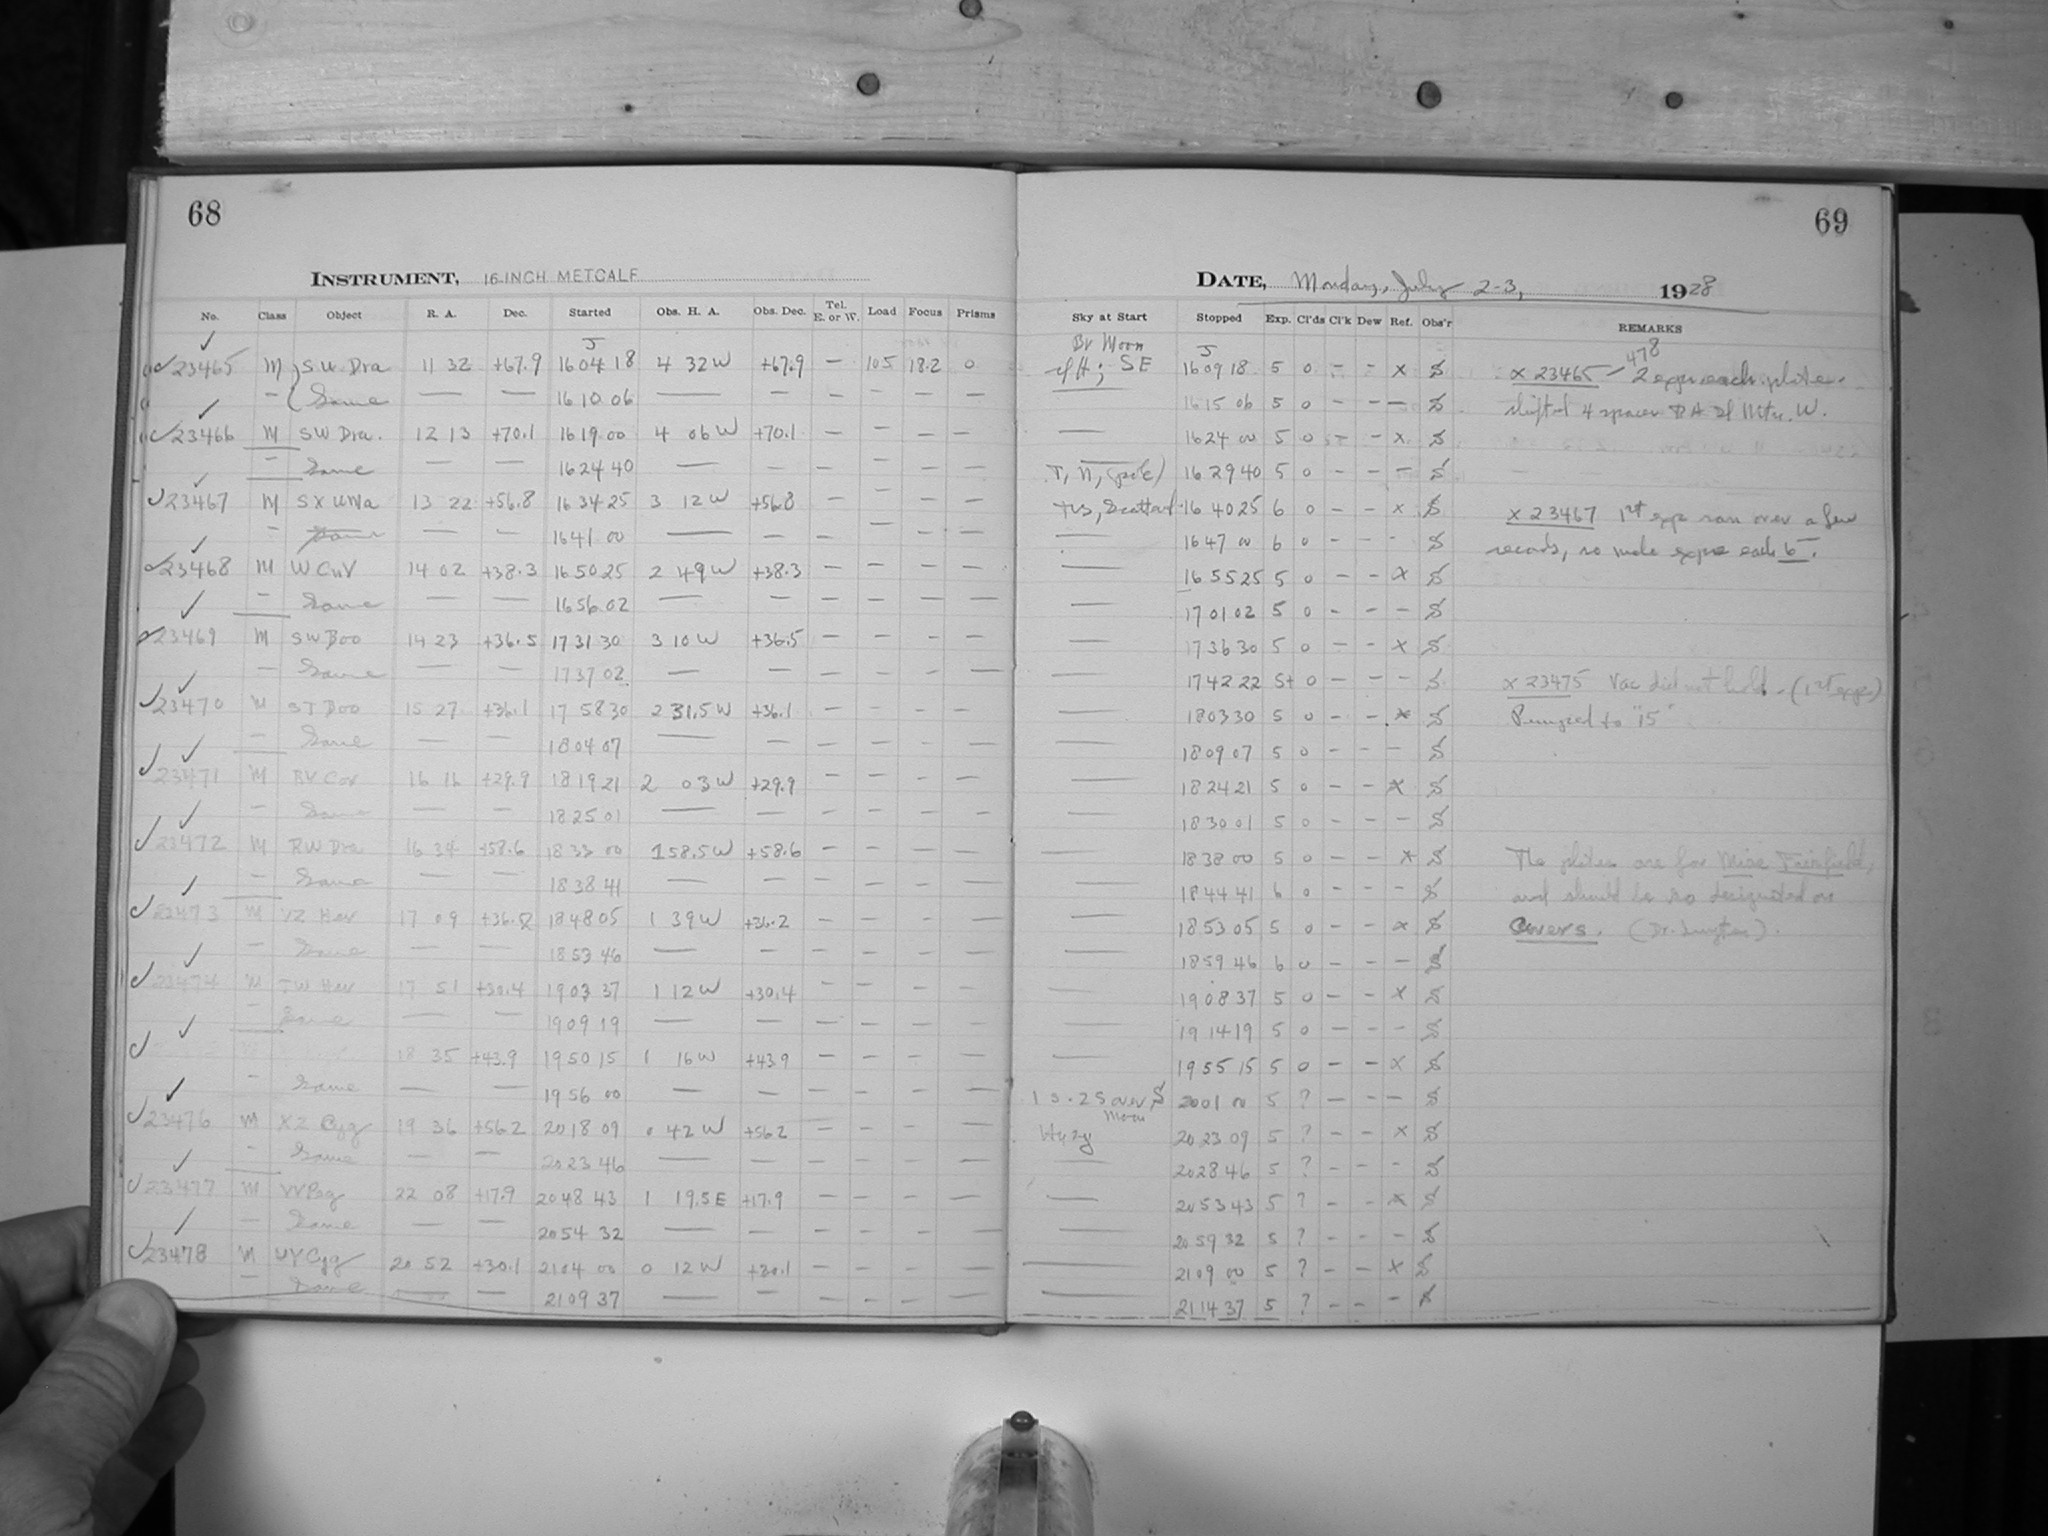 68
INSTRUMENT, 16-INCH METCALF
No. Class Object R. A. Dec. Started Obs. H. A. Obs. Dec. Tel. E. or W. Load Focus Prisms
J
23465 M SW Dra 11 32 +67.9 16 04 18 4 32 W +67.9 — 105 18.2 0
— Same — — 16 10 06 — — — — — —
23466 M SW Dra. 12 13 +70.1 16 19 00 4 06 W +70.1 — — — —
— Same — — 16 24 40 — — — — — —
23467 M SX UMa 13 22 +56.8 16 34 25 3 12 W +56.8 — — — —
— Same — — 16 41 00 — — — — — —
23468 M W CnV 14 02 +38.3 16 50 25 2 49 W +38.3 — — — —
— Same — — 16 56 02 — — — — — —
23469 M SW Boo 14 23 +36.5 17 31 30 3 10 W +36.5 — — — —
— Same — — 17 37 02 — — — — — —
23470 M ST Boo 15 27 +36.1 17 58 30 2 31.5 W +36.1 — — — —
— Same — — 18 04 07 — — — — — —
23471 M RV Cor 16 16 +29.9 18 19 21 2 03 W +29.9 — — — —
— Same — — 18 25 01 — — — — — —
23472 M RW Dra 16 34 +58.6 18 33 00 1 58.5 W +58.6 — — — —
— Same — — 18 38 41 — — — — — —
23473 M VZ Her 17 09 +36.2 18 48 05 1 39 W +36.2 — — — —
— Same — — 18 53 46 — — — — — —
23474 M TW Her 17 51 +30.4 19 03 37 1 12 W +30.4 — — — —
— Same — — 19 09 19 — — — — — —
18 35 +43.9 19 50 15 1 16 W +43.9 — — — —
— Same — — 19 56 00 — — — — — —
23476 M XZ Cyg 19 36 +56.2 20 18 09 0 42 W +56.2 — — — —
— Same — — 20 23 46 — — — — — —
23477 M VV Peg 22 08 +17.9 20 48 43 1 19.5 E +17.9 — — — —
— Same — — 20 54 32 — — — — — —
23478 M UY Cyg 20 52 +30.1 21 04 00 0 12 W +30.1 — — — —
— Same — — 21 09 37 — — — — — —
69
DATE, Monday, July 2-3, 1928
Sky at Start Stopped Exp. Cl'ds Cl'k Dew Ref. Obs'r REMARKS
Br Moon J
SE 16 09 18 5 0 — — x S
— 16 15 06 5 0 — — — S
— 16 24 00 5 0 — x S
T, N, (pole) 16 29 40 5 0 — — — S
Scattered 16 40 25 6 0 — — x S
— 16 47 00 6 0 — — — S
— 16 55 25 5 0 — — x S
— 17 01 02 5 0 — — — S
— 17 36 30 5 0 — — x S
— 17 42 22 5+ 0 — — — S
— 18 03 30 5 0 — — x S
— 18 09 07 5 0 — — — S
— 18 24 21 5 0 — — x S
— 18 30 01 5 0 — — — S
— 18 38 00 5 0 — — x S
— 18 44 41 6 0 — — — S
— 18 53 05 5 0 — — x S
— 18 59 46 6 0 — — — S
— 19 08 37 5 0 — — x S
— 19 14 19 5 0 — — — S
— 19 55 15 5 0 — — x S
Moon 20 01 00 5 ? — — — S
Hazy 20 23 09 5 ? — — x S
— 20 28 46 5 ? — — — S
— 20 53 43 5 ? — — x S
— 20 59 32 5 ? — — — S
— 21 09 00 5 ? — — x S
— 21 14 37 5 ? — — — S
x 23465 – 478 2 exps each plate.
shifted 4 spaces RA W.
x 23467 1st exp ran over a few
seconds, so made exps each 6.
x 23475 Vac did not hold – (1st exp)
Pumped to "15"
The plates are for Miss Fairfield,
and should be so designated on
Covers. (Dr. Luyten).